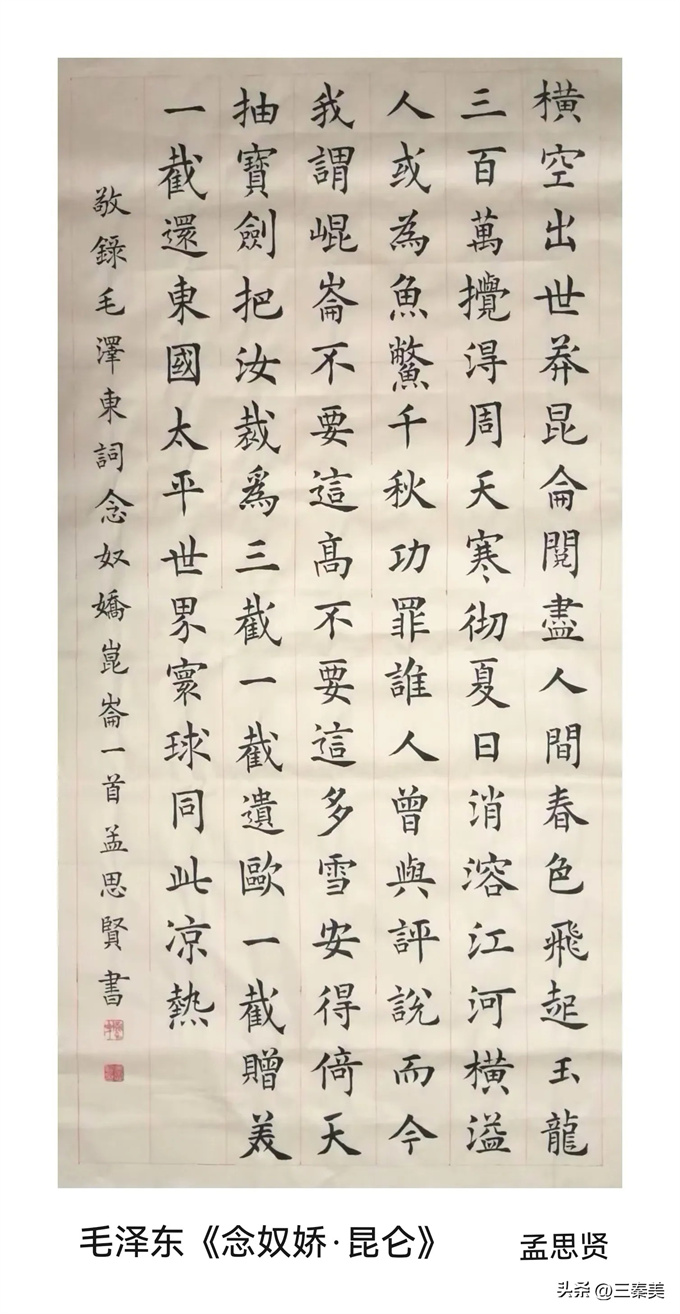 橫空出世莽昆侖閱盡人間春色飛起玉龍
三百萬攪淂周天寒彻夏日消溶江河橫溢
人或為魚鱉千秋功罪誰人曾與評說而今
我謂崐崙不要這高不要這多雪安得倚天
抽寶劍把汝裁爲三截一截遺歐一截贈美
一截還東國太平世界寰球同此凉熱
敬錄毛澤東詞念奴嬌崑崙一首孟思賢書
毛泽东《念奴娇·昆仑》 孟思贤
头条 @三秦美